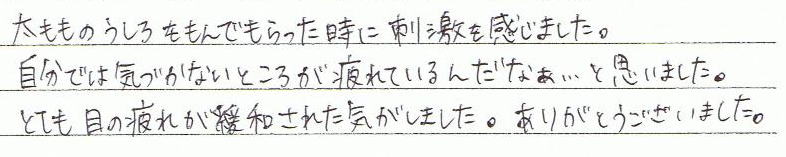 太もものうしろをもんでもらった時に刺激を感じました。
自分では気づかないところが疲れているんだなぁ…と思いました。
とても目の疲れが緩和された気がしました。ありがとうございました。